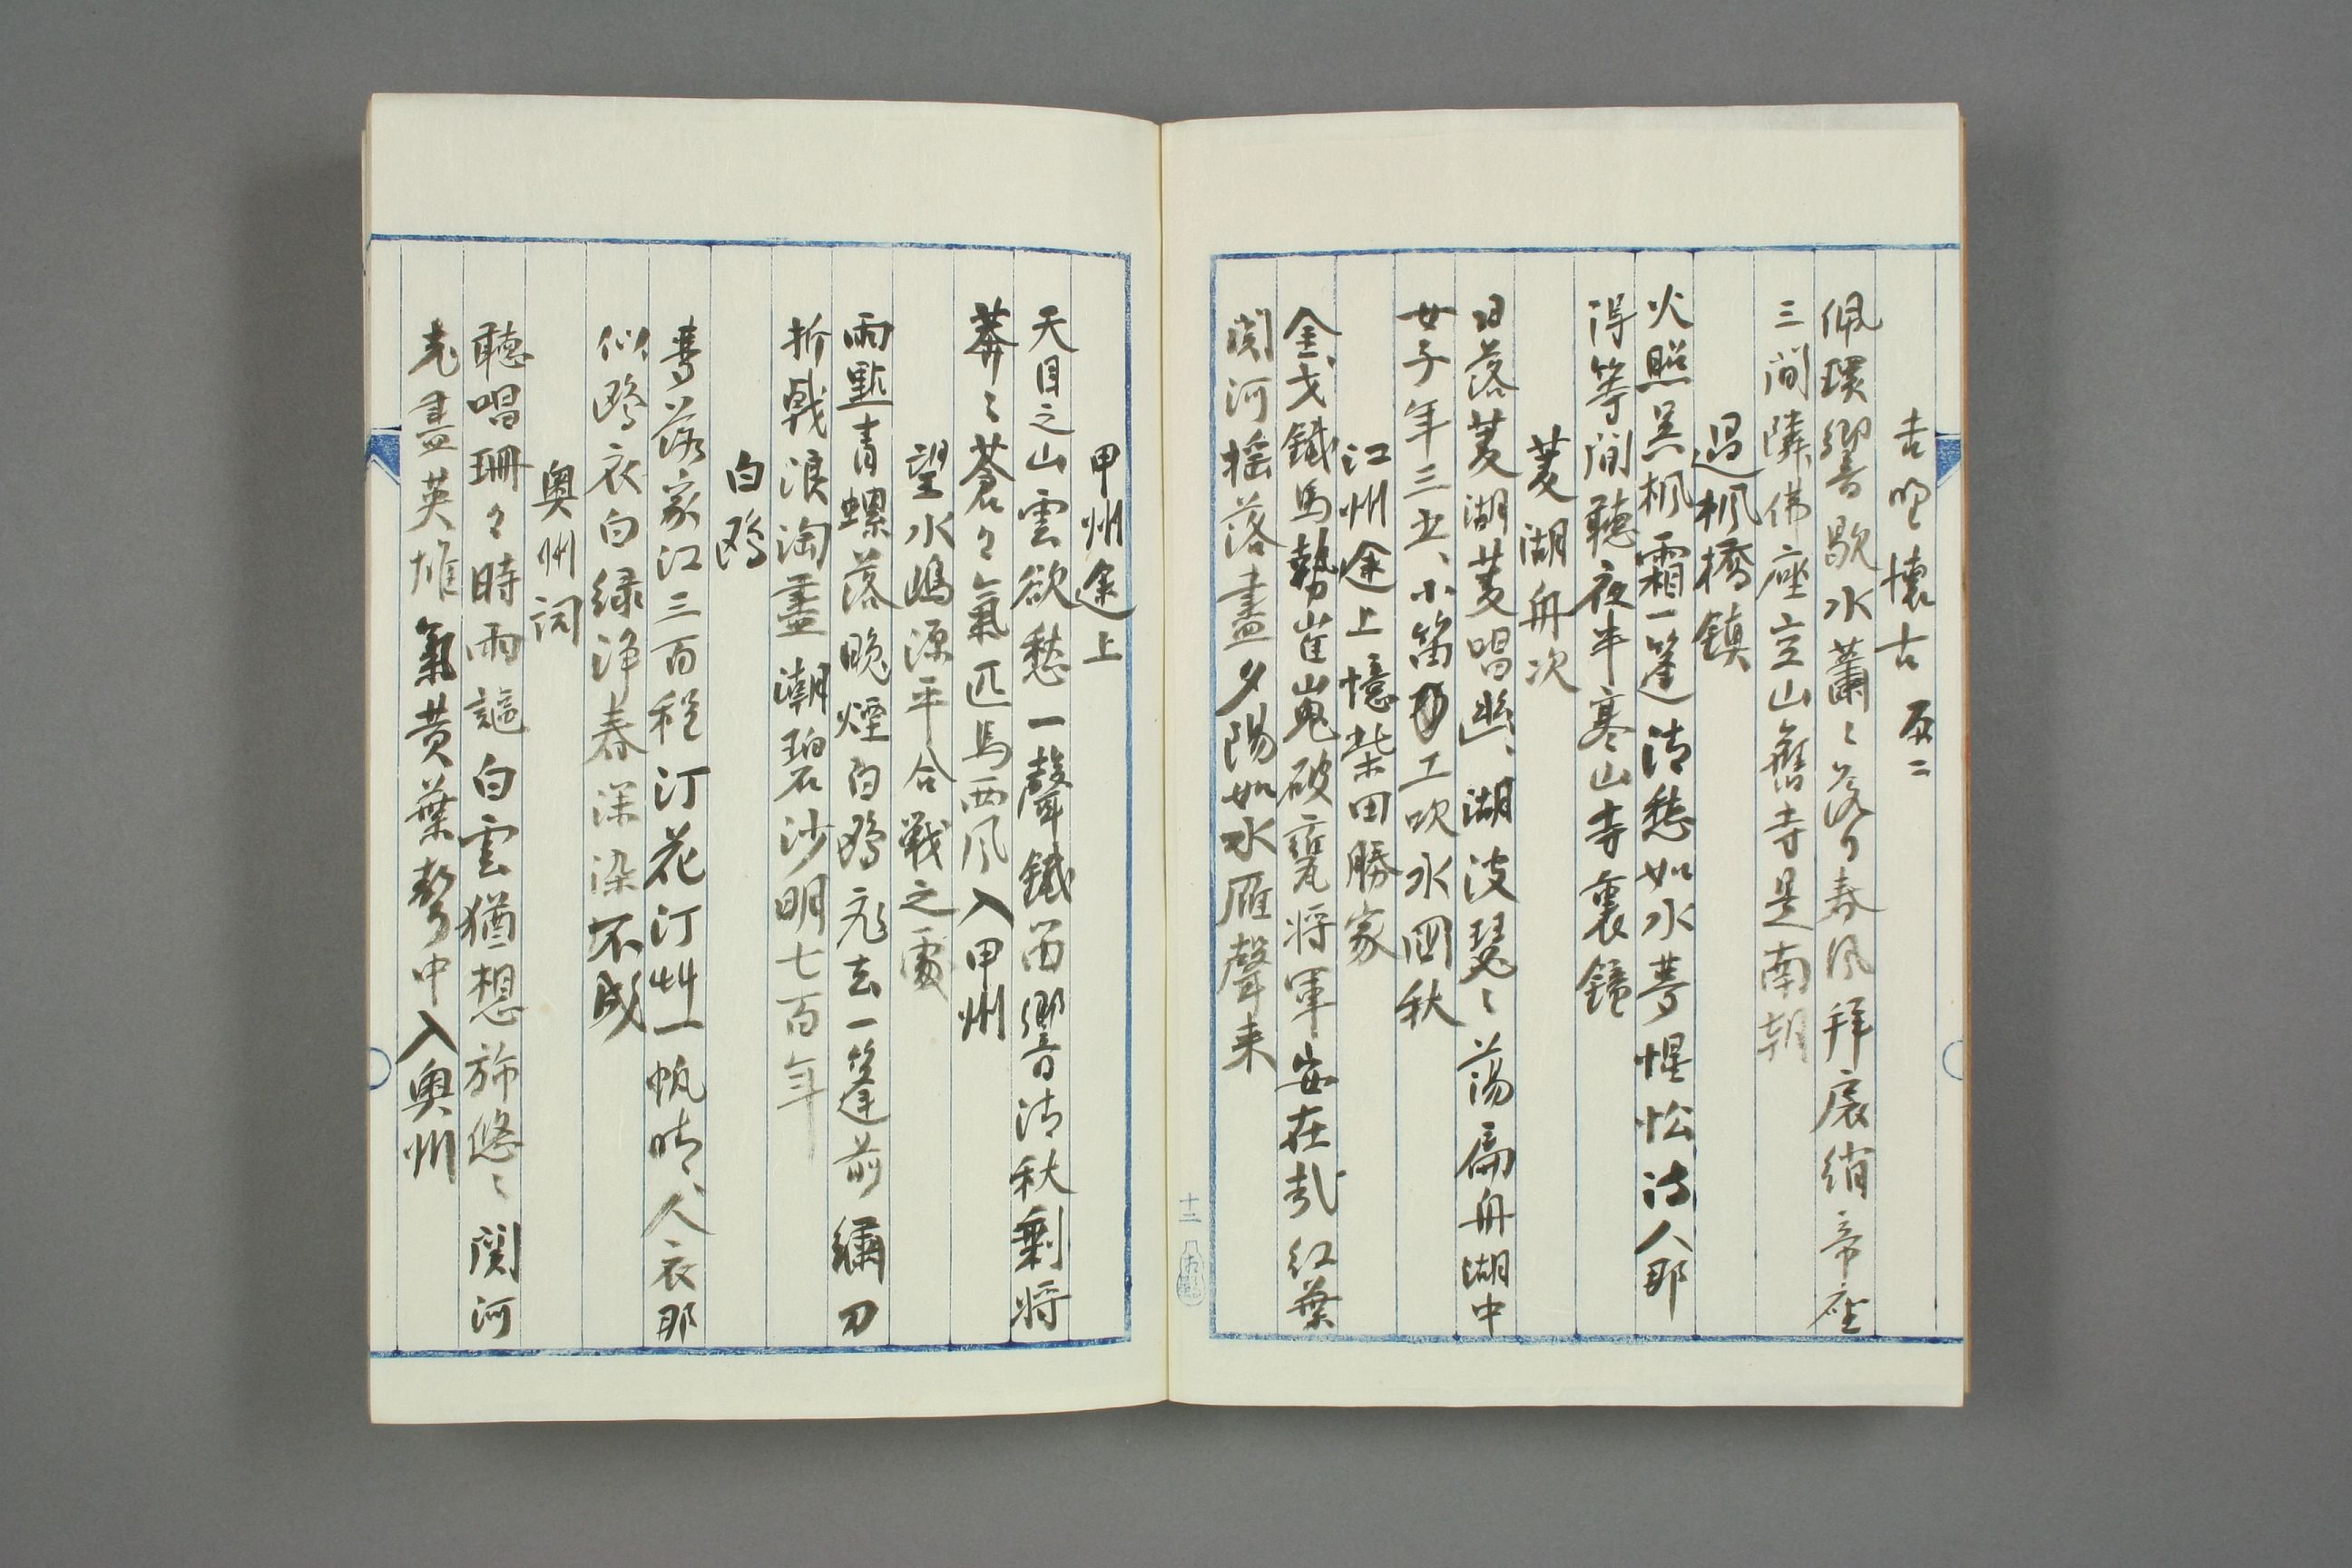 吉野懐古 原二
佩環響歇水蕭〻落多春風拜扆綃帝座
三間隣佛座空山舊寺是南朝
過楓橋鎮
火照呉楓霜一篷清愁如水夢惺忪詩人那
得等間聽夜半寒山寺裏鐘
菱湖舟次
日落菱湖菱唱幽、湖波瑟〻蕩扁舟湖中
女子年三五、小笛工吹水国秋
江州途上憶柴田勝家
金戈鐵馬勢崔嵬破甕将軍安在哉紅葉
関河揺落盡夕陽如水雁聲来
十二
甲州途上
天目之山雲欲愁一聲鐵笛響清秋剰将
莽〻蒼々氣匹馬西風入甲州
望水嶋源平合戰之處
雨點青螺落晩煙白鴎飛去一篷前繍刀
折戟浪淘盡潮碧沙明七百年
白鴎
夢落家江三百程汀花汀艸一帆晴、人衣那
似鴎衣白緑浄春深染不成
奥州詞
聽唱珊々時雨謳白雲猶想旆悠〻関河
老盡英雄氣黄葉声中入奥州